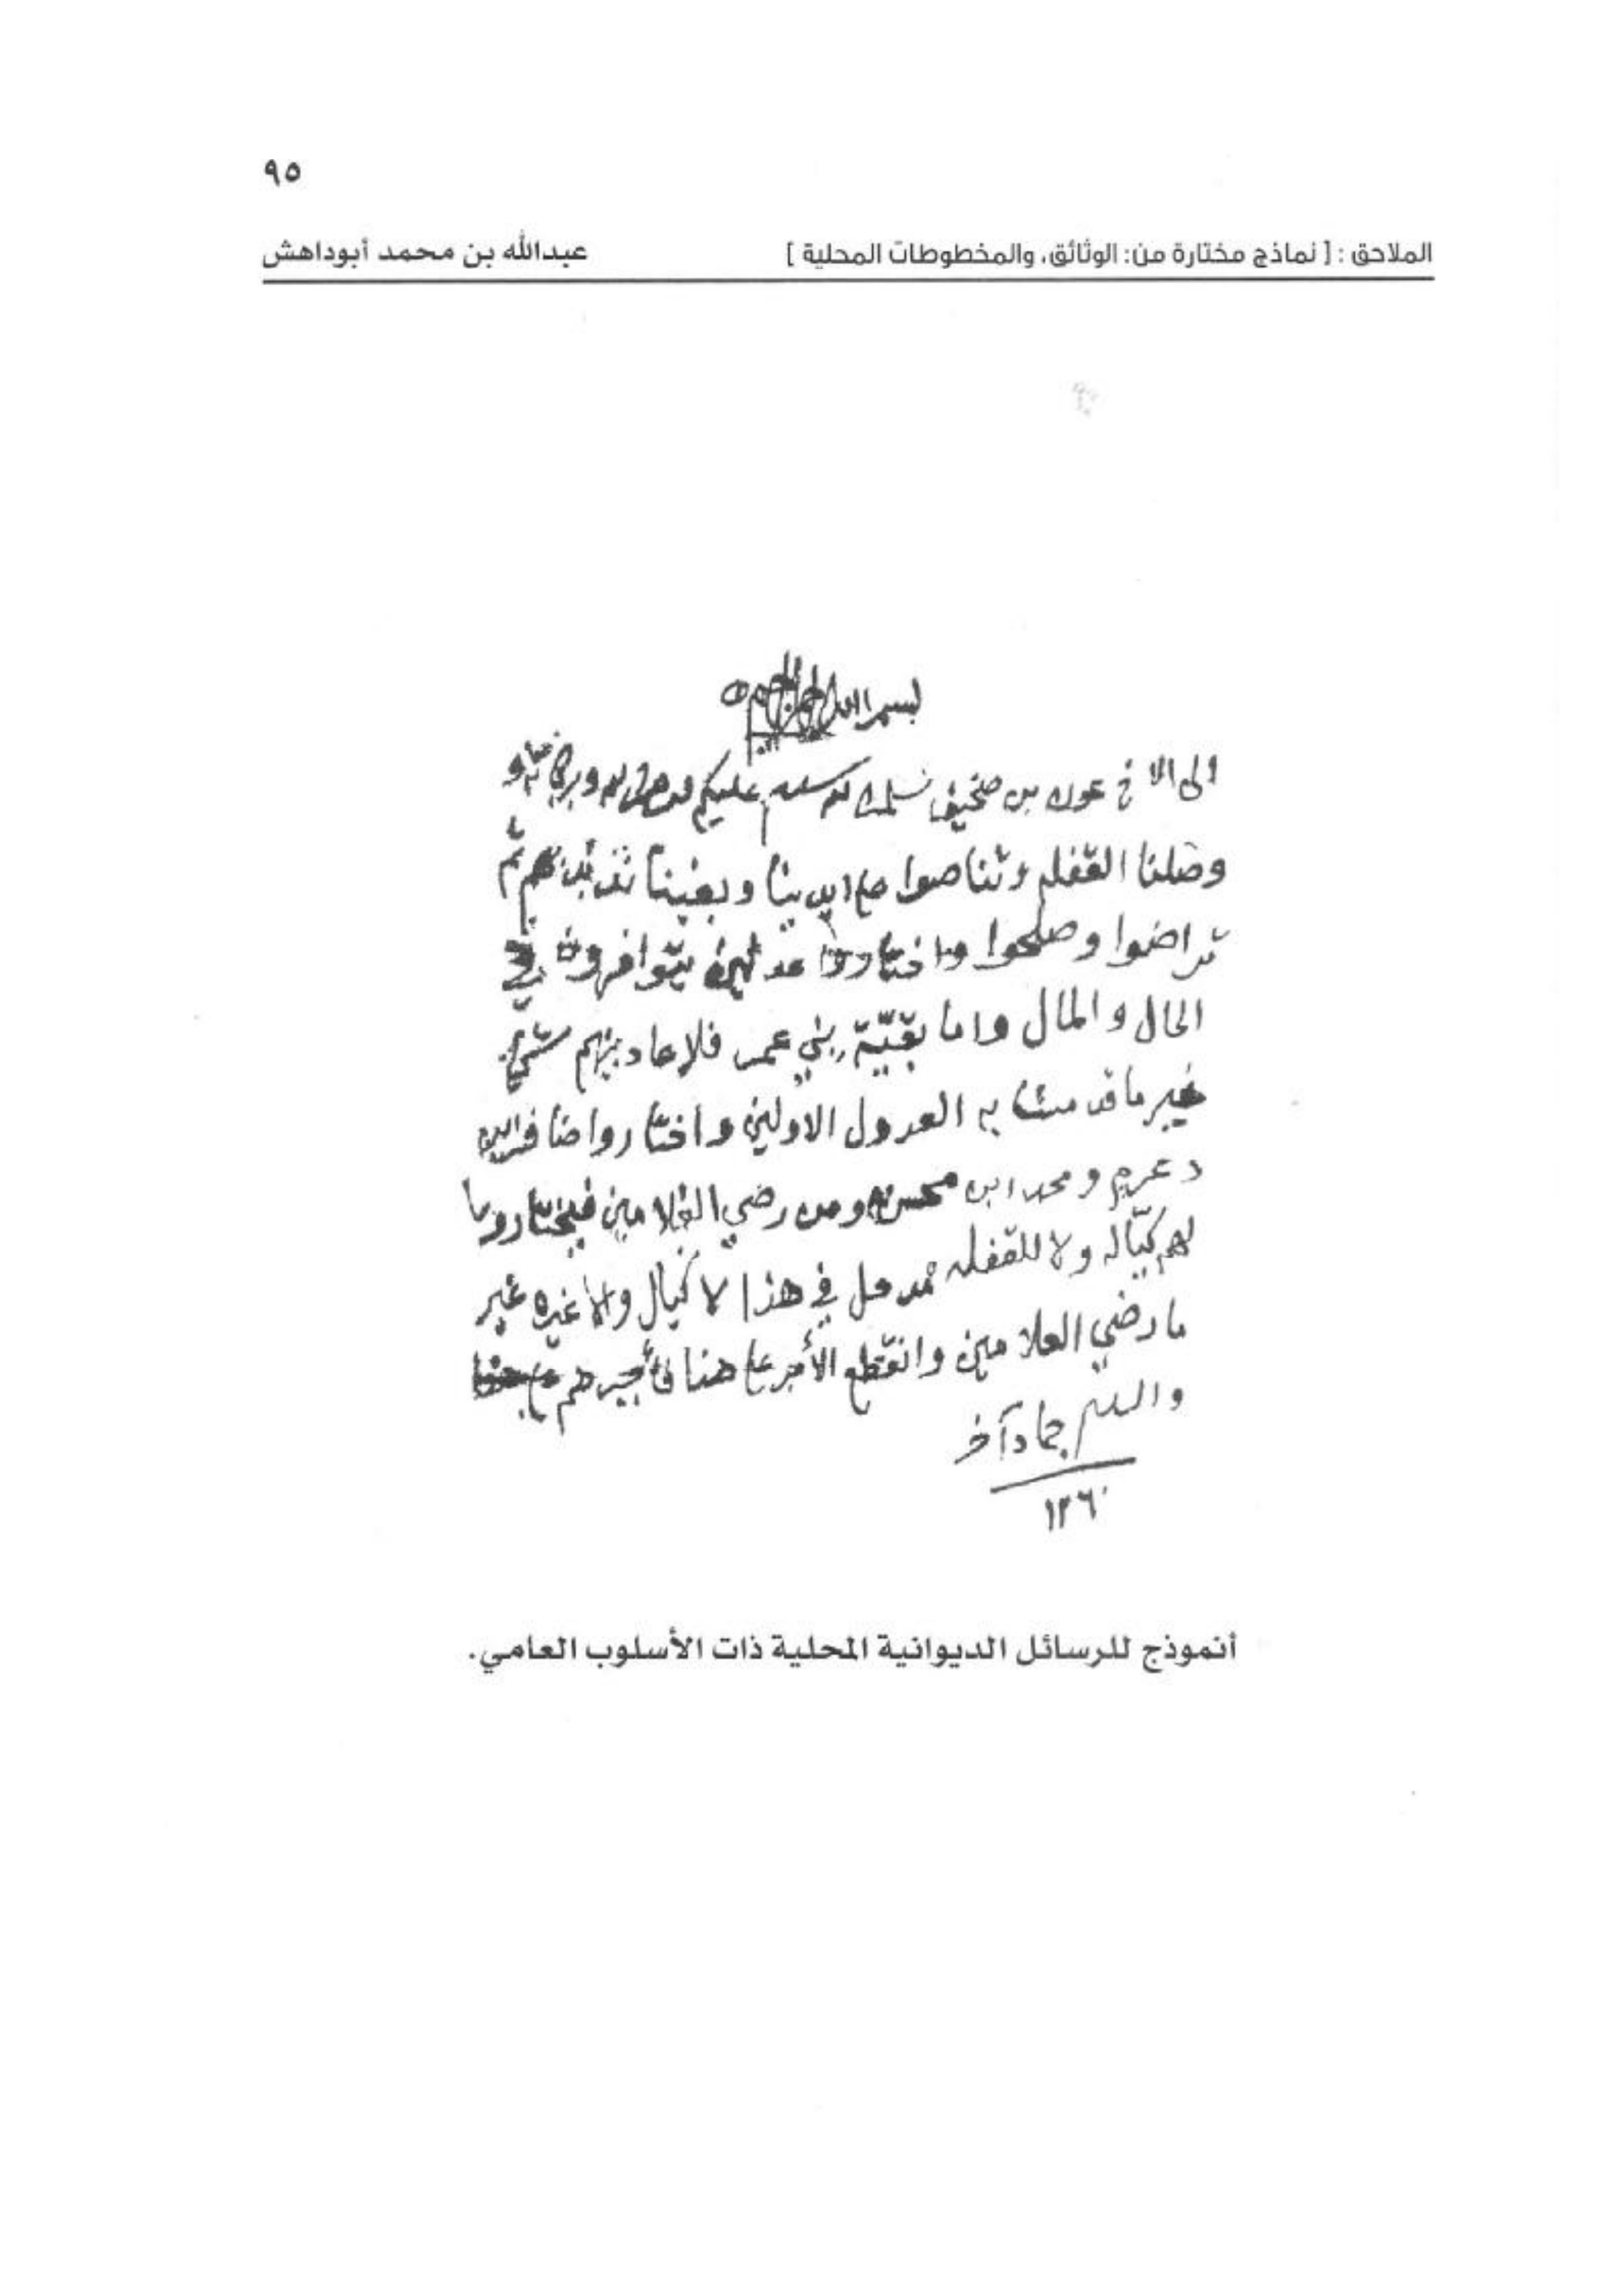 ٩٥
الملاحق : [ نماذج مختارة من: الوثائق، والمخطوطات المحلية ] عبدالله بن محمد أبوداهش
بسم الله الرحمن الرحيم
الى الاخ عون بن صخيف سلمه الله سلام عليكم ورحمة الله وبركاته و
وصلنا القفله وتناصوا على يدينا وبغينا ثم
تراضوا وصلحوا واختاروا عدلين يتوافهون في
الحال والمال واما بقيّة بني عمر فلا عاد بينهم شي
غير ما قد مشا به العدول الاولين واختاروا ضافر ابن
دعرم ومحمد ابن محسن ومن رضي الغلامين فيختاروا
لهم كيّاله ولا للقفله مدخل في هذا لا كيال ولا غيره غير
ما رضي الغلامين وانقطع الأمر على هنا فأجبرهم على
والسلام جماد آخر
١٢٦٠
أنموذج للرسائل الديوانية المحلية ذات الأسلوب العامي.